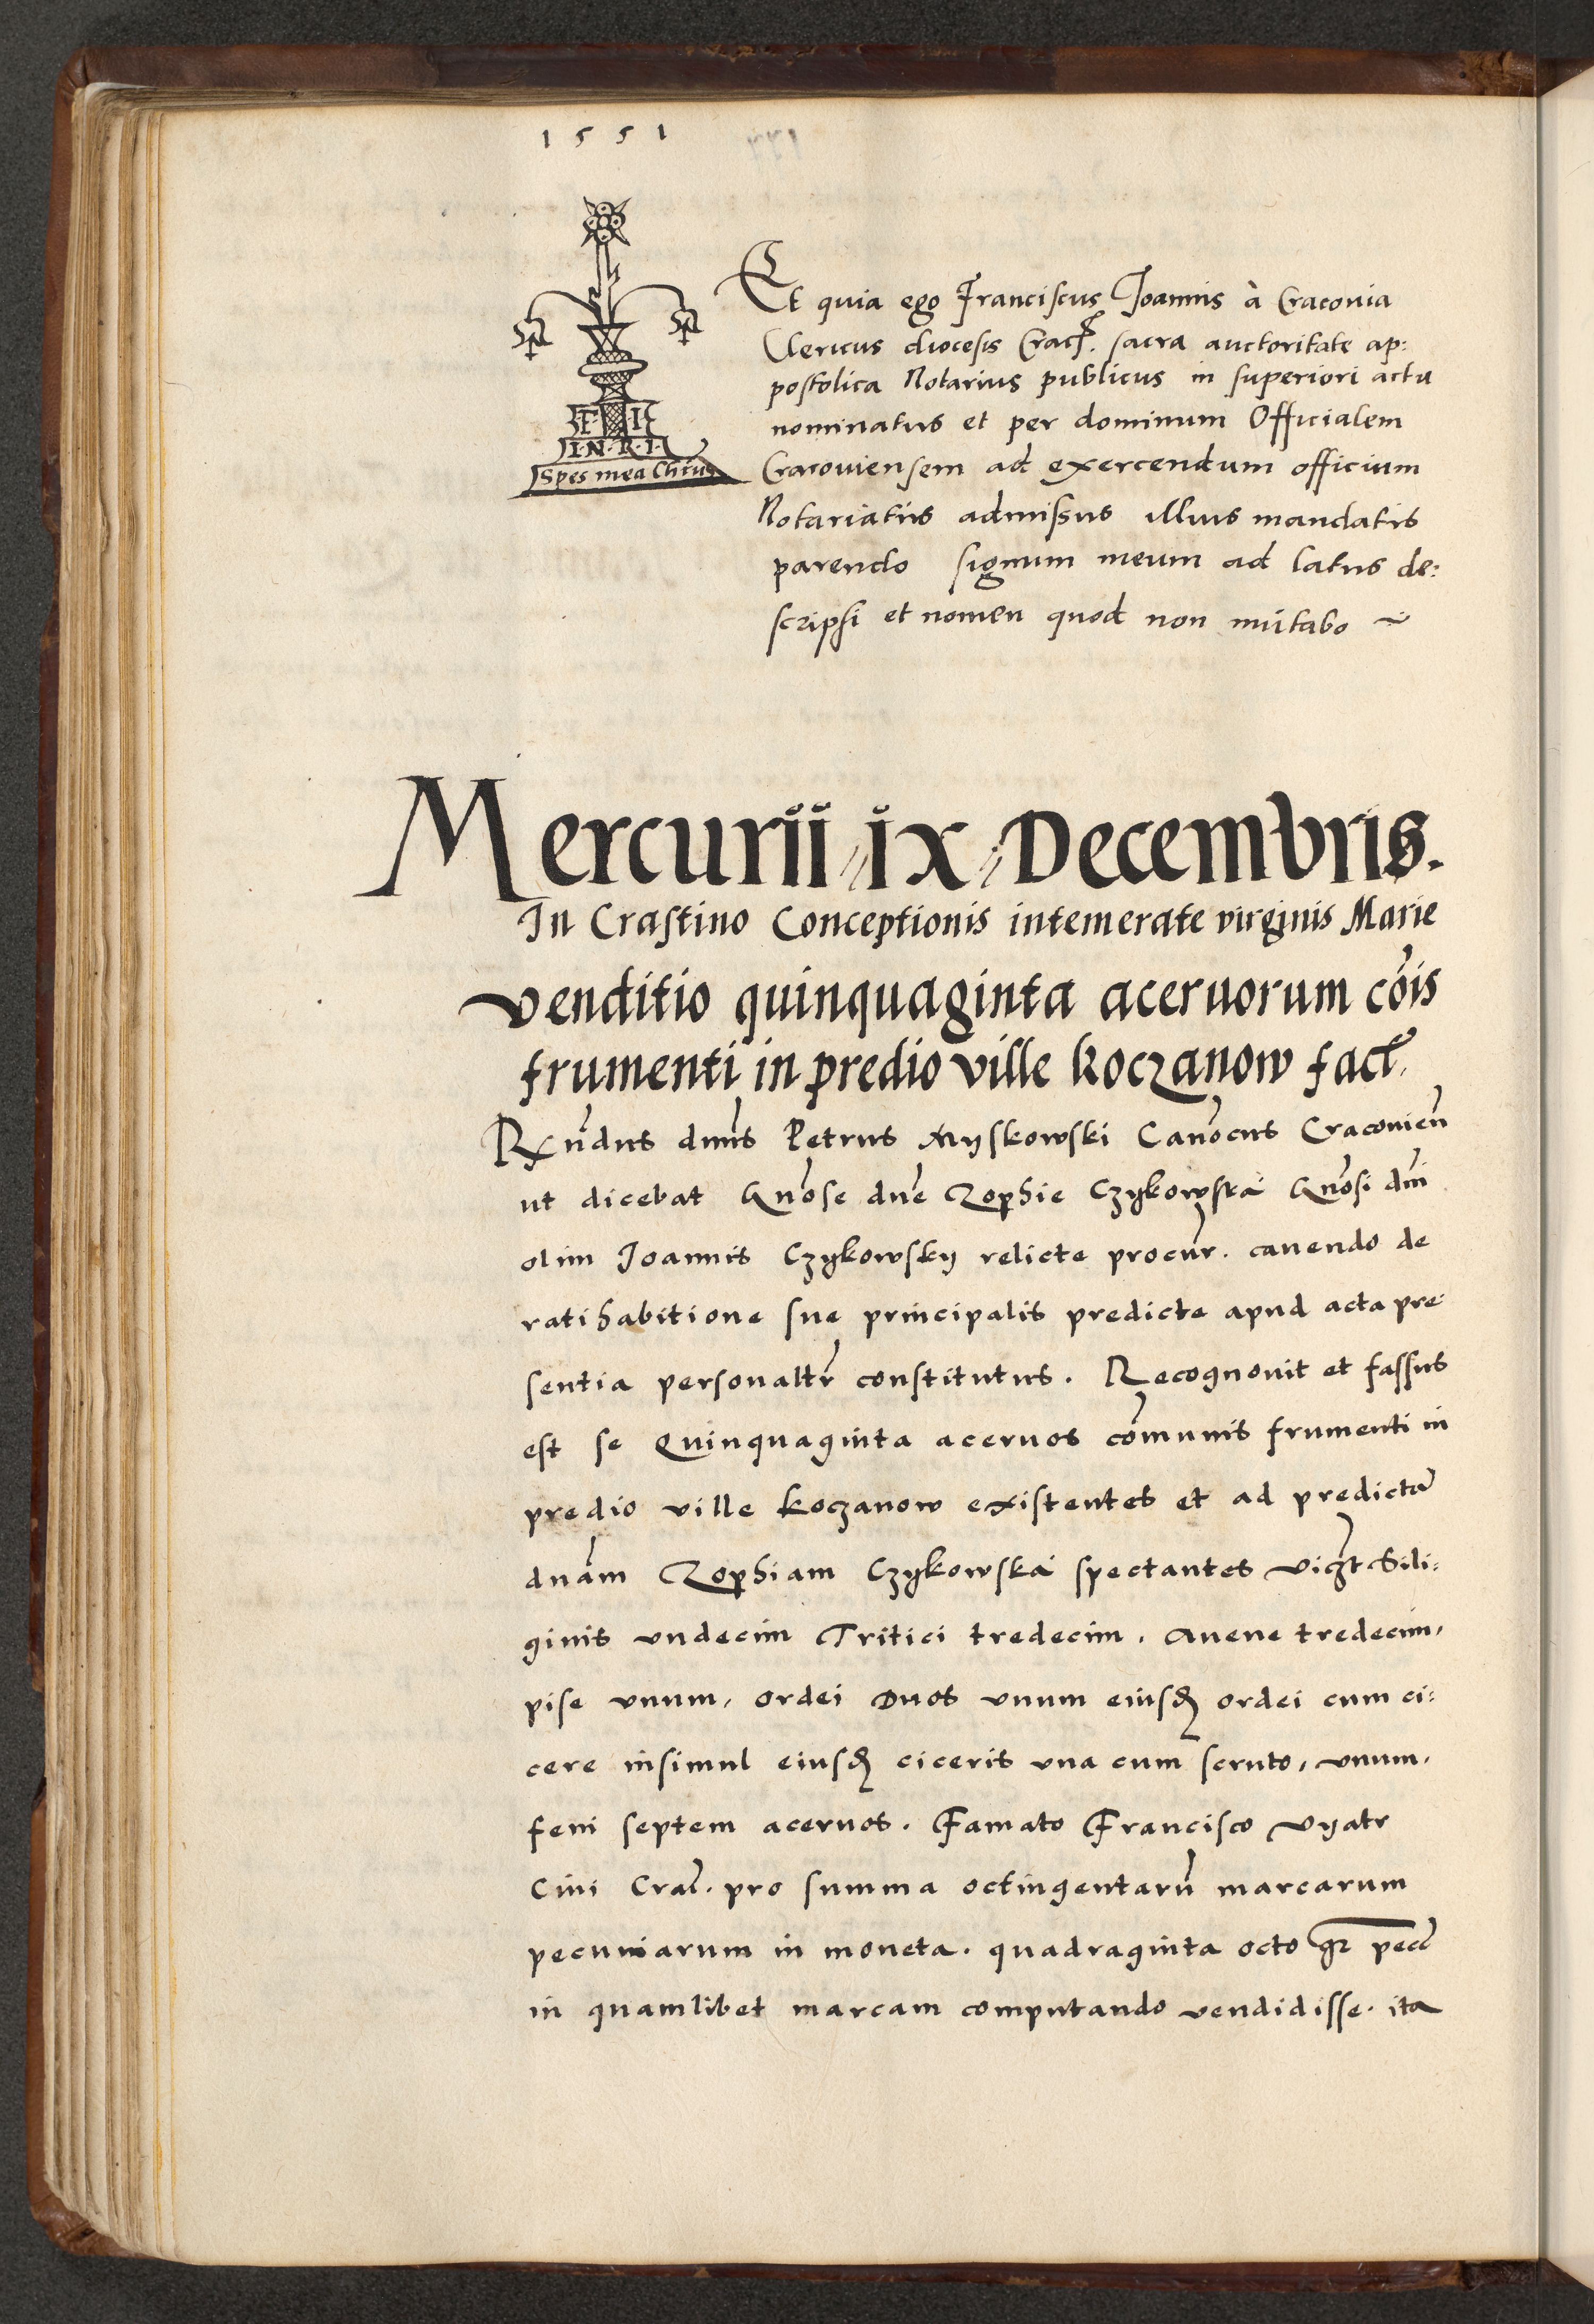 1551
F I
I·N·R·I·
Spes mea Chrūs
Et quia ego Franciscus Joannis à Cracovia
Clericus diocesis Crac. sacra auctoritate ap:
postolica Notarius publicus in superiori actu
nominatus et per dominum Officialem
Cracoviensem ad exercendum officium
Notariatus admissus illius mandatis
parendo signum meum ad latus de:
scripsi et nomen quod non mutabo ~
Mercurii ix Decembris.
In Crastino Conceptionis intemerate virginis Marie
venditio quinquaginta aceruorum cōis
frumenti in predio ville Koczanow fact.
Rn̄dus dnns Petrus Myskowski Canōcus Cracovien̄
ut dicebat Gn̄ose dn̄e Zophie Czykowska Gn̄osi dn̄i
olim Joannis Czykowsky relicte procur̄. cauendo de
ratihabitione sue principalis predicte apud acta pre
sentia personaltr̄ constitutus. Recognouit et fassus
est se Quinquaginta aceruos cōmunis frumenti in
predio ville Koczanow existentes et ad predictā
dnām Zophiam Czykowska spectantes viczt Sili:
ginis vndecim Tritici tredecim. Auene tredecim,
pise vnum, ordei Duos vnum eiusdē ordei cum ci:
cere insimul eiusdē ciceris vna cum scruto, vnum,
feni septem aceruos. Famato Francisco Vyatr
Ciui Crac̄. pro summa octingentarū marcarum
pecuniarum in moneta. quadraginta octo gr pecc̄
in quamlibet marcam computando vendidisse. ita